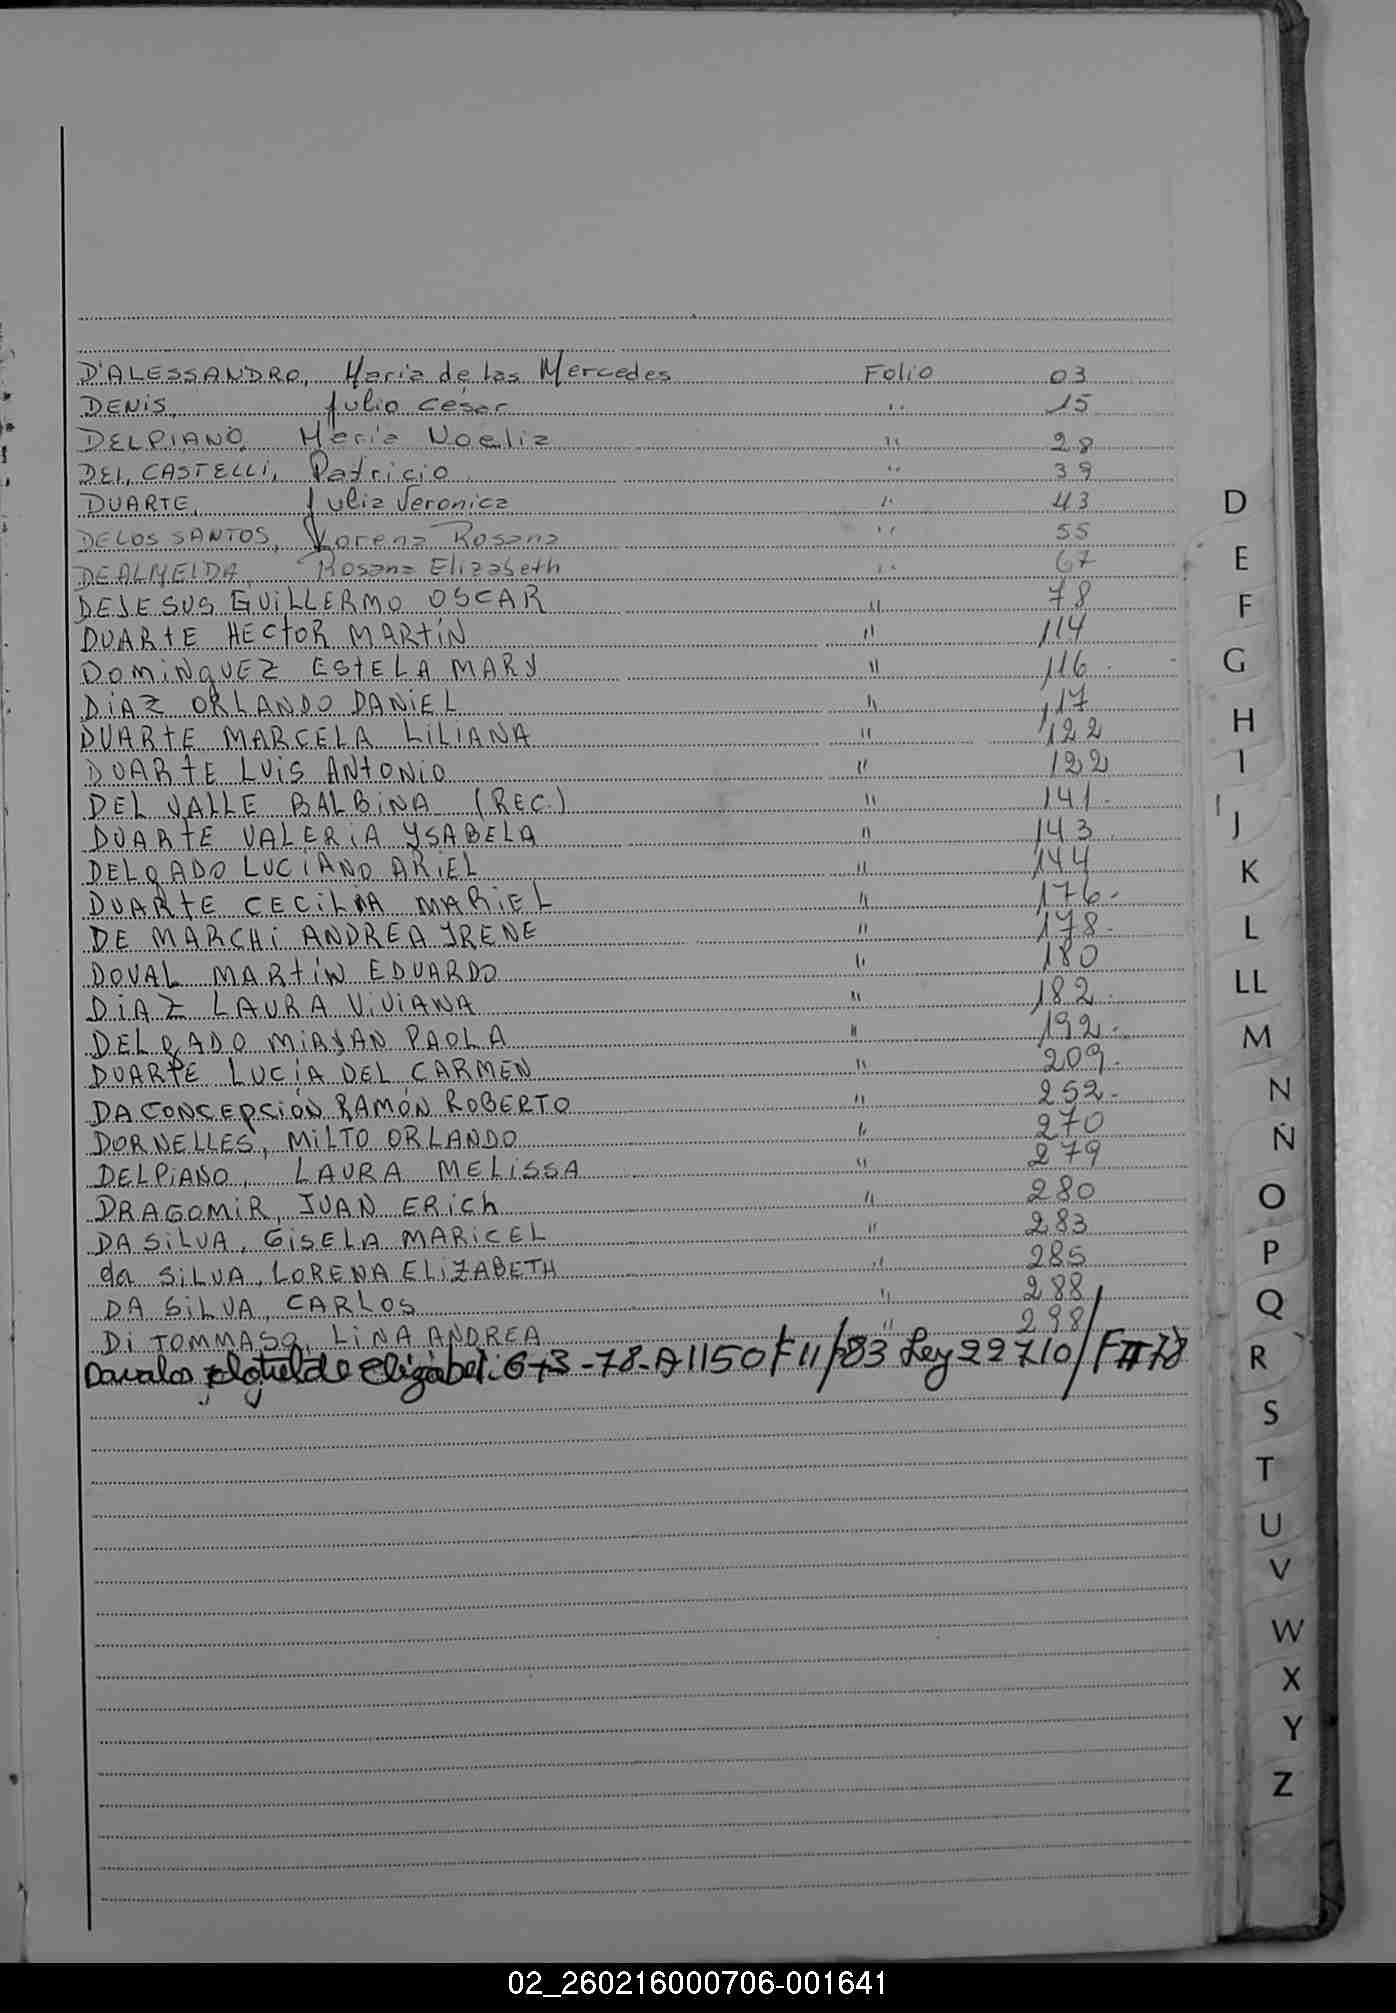 D'ALESSANDRO, Maria de las Mercedes Folio 03
DENIS, Julio César " 15
DELPIANO, Maria Noelia " 28
DEL CASTELLI, Patricio " 39
DUARTE, Julia Veronica " 43
DE LOS SANTOS, Lorena Rosana " 55
DE ALMEIDA, Rosana Elizabeth " 67
DEJESUS GUILLERMO OSCAR " 78
DUARTE HECTOR MARTÍN " 114
DOMINGUEZ ESTELA MARY " 116
DIAZ ORLANDO DANIEL " 117
DUARTE MARCELA LILIANA " 122
DUARTE LUIS ANTONIO " 122
DEL VALLE BALBINA (REC.) " 141.
DUARTE VALERIA YSABELA " 143
DELGADO LUCIANO ARIEL " 144
DUARTE CECILIA MARIEL " 176.
DE MARCHI ANDREA YRENE " 178.
DOVAL MARTÍN EDUARDO " 180
DIAZ LAURA VIVIANA " 182.
DELGADO MIRYAN PAOLA " 192.
DUARTE LUCÍA DEL CARMEN " 209.
DA CONCEPCIÓN RAMÓN ROBERTO " 252.
DORNELLES, MILTO ORLANDO " 270
DELPIANO, LAURA MELISSA " 279
DRAGOMIR, JUAN ERICH " 280
DA SILVA, GISELA MARICEL " 283
da SILVA, LORENA ELIZABETH " 285
DA SILVA, CARLOS " 288
DI TOMMASO, LINA ANDREA " 298
Davalos Elizabet: 6-3-78-A1150 F11/83 Ley 22710/
D
E
F
G
H
I
J
K
L
LL
M
N
Ñ
O
P
Q
R
S
T
U
V
W
X
Y
Z
02_260216000706-001641